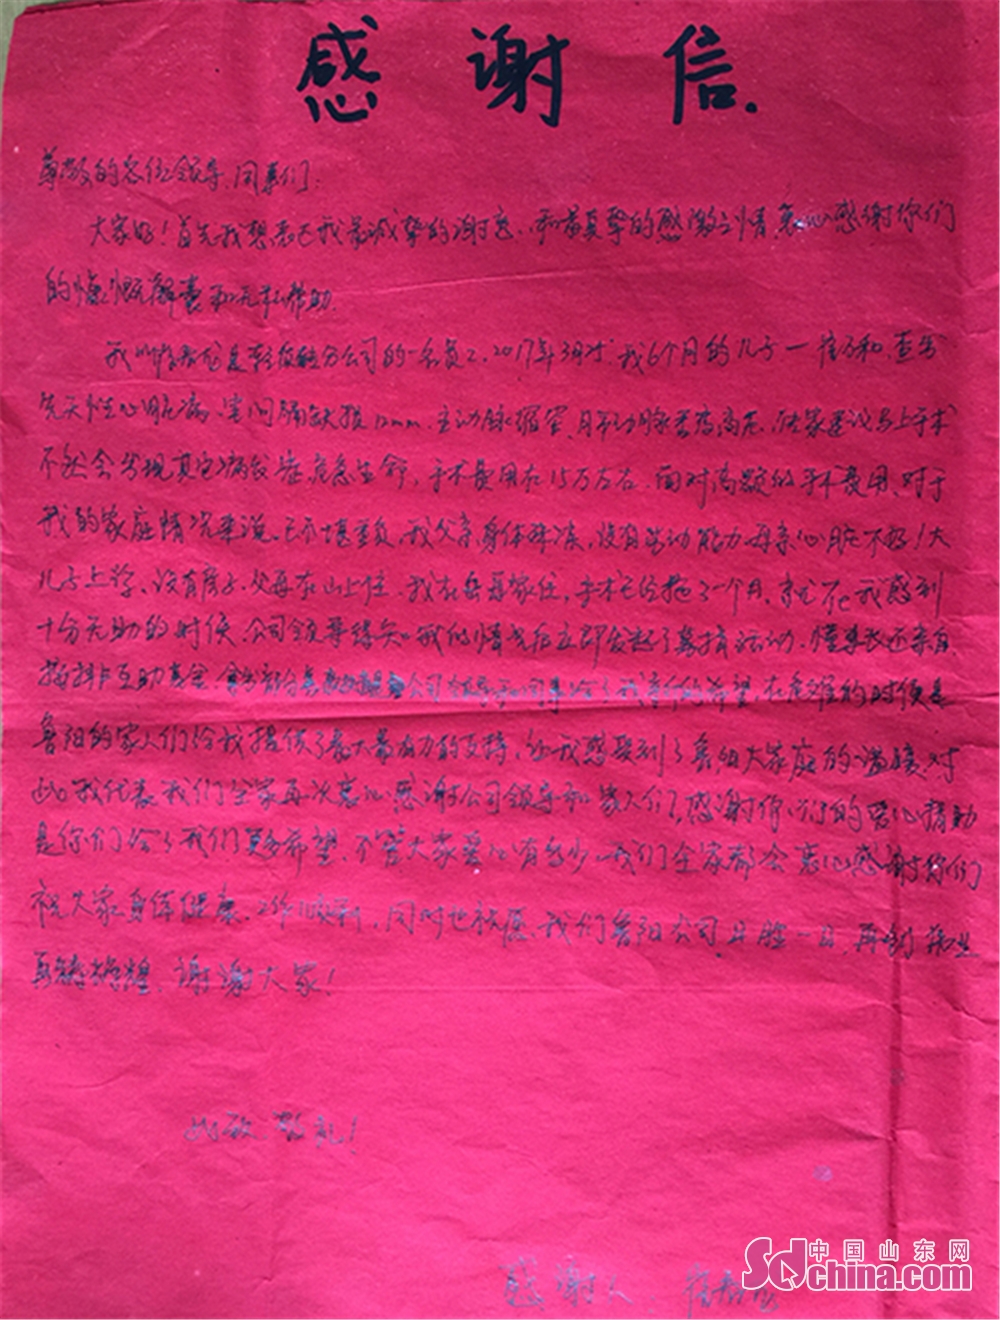 感谢信.
尊敬的各位领导、同事们:
大家好!首先我想表已我最诚挚的谢意、和最真挚的感谢之情衷心感谢你们
的慷慨解囊和无私帮助.
我叫 是 分公司的一名员工,2017年3月时.我6个月的儿子一崔 和.查出
先天性心脏病、室间隔缺损12mm、主动脉 、肺动脉 高危,医家建议马上手术
不然会发现其它病发症危急生命,手术费用在15万左右.面对高额的手术费用,对于
我的家庭情况来说、已不堪重负,我父亲身体 ,没有劳动能力母亲心脏不好!大
儿子上学、没有房子、父母在山上住、我在岳母家住,手术已经拖了一个月,就在我感到
十分无助的时候、公司领导得知我的情况后立即发起了募捐活动、懂事长还亲自
互助基金, 公司领导和同事给了我 的希望,在危难的时候是
鲁阳的家人们给我提供了最大最有力的支持,让我感受到了 大家庭的温暖,对
此我代表我们全家再次衷心感谢公司领导和家人们,感谢你们的爱心捐助
是你们给了我们更多希望、不管大家爱心有多少、我们全家都会衷心感谢你们
祝大家身体健康、工作顺利,同时也祝愿、我们鲁阳公司、日胜一日,
再 辉煌、谢谢大家!
此致、敬礼!
感谢人:崔
中国山东网
Sdchina.com